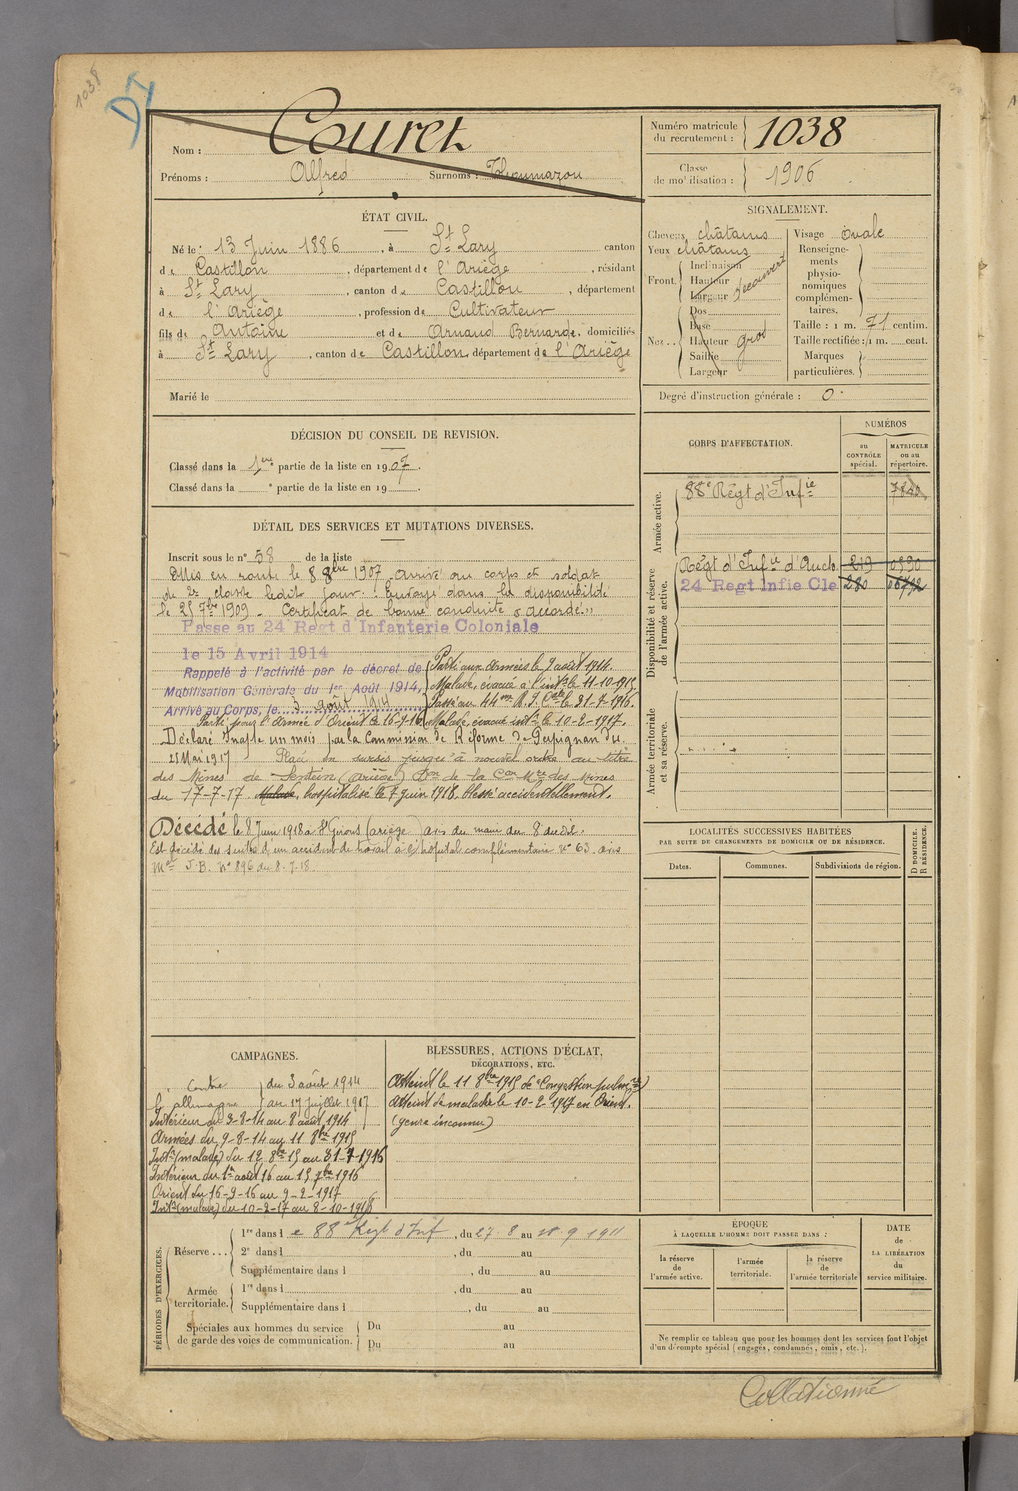 1038
DI
Nom : Couret
Prénoms : Alfred Surnoms :
Numéro matricule du recrutement : 1038
Classe de mobilisation : 1906
ÉTAT CIVIL.
Né le 13 Juin 1886, à St Lary canton
de Castillon, département de l'Ariège, résidant
à St Lary, canton de Castillon, département
de l'Ariège, profession de Cultivateur
fils de Antoine et de Arnaud Bernarde, domiciliés
à St Lary, canton de Castillon, département de l'Ariège
Marié le
SIGNALEMENT.
Cheveux châtains
Yeux châtains
Front. Inclinaison
Hauteur
Largeur
découvert
Nez .. Dos
Base
Hauteur
Saillie
Largeur
gros
Visage ovale
Renseignements physionomiques complémentaires.
Taille : 1 m. 71 centim.
Taille rectifiée : 1 m. cent.
Marques particulières.
Degré d'instruction générale : 0
DÉCISION DU CONSEIL DE REVISION.
Classé dans la 1ère partie de la liste en 1907.
Classé dans la e partie de la liste en 19 .
CORPS D'AFFECTATION.
NUMÉROS
au CONTRÔLE spécial.
MATRICULE ou au répertoire.
Armée active.
88e Régt d'Infie 7840
Disponibilité et réserve de l'armée active.
Régt d'Infie d'Auch. 219 0590
24 Regt Infie Cle 280
Armée territoriale et sa réserve.
DÉTAIL DES SERVICES ET MUTATIONS DIVERSES.
Inscrit sous le n° 58 de la liste
Mis en route le 8 8bre 1907 arrivé au corps et soldat
de 2e classe ledit jour. Envoyé dans la disponibilité
le 25 7bre 1909 - Certificat de bonne conduite "accordé"
Passé au 24 Regt d'Infanterie Coloniale
le 15 Avril 1914
Rappelé à l'activité par le décret de
Mobilisation Générale du 1er Août 1914,
Arrivé au Corps, le 3 août 1914
Parti aux armées le 9 août 1914.
Malade, évacué à l'intr le 11-10-1915
Passé au 44me R.I. Cale le 31-7-1916.
Parti pour l'Armée d'Orient le 16-9-16
Malade évacué intr le 10-2-1917.
Déclaré Inapte un mois par la Commission de Réforme de Perpignan du
25 Mai 1917 Placé en sursis jusqu'à nouvel ordre au titre
des Mines de Sentein (Ariège) Don de la Con Mre des Mines
du 17-7-17. Malade, hospitalisé le 7 juin 1918. Blessé accidentellement.
Décédé le 8 Juin 1918 à St Girons (ariège) avis du maire du 8 dudit.
Est décédé des suites d'un accident de travail à l'hôpital complémentaire n° 63. avis
Mel J.B. N° 896 du 8.7.18
LOCALITÉS SUCCESSIVES HABITÉES
PAR SUITE DE CHANGEMENTS DE DOMICILE OU DE RÉSIDENCE.
Dates.
Communes.
Subdivisions de région.
D DOMICILE.
R RÉSIDENCE.
CAMPAGNES.
Contre du 3 août 1914
l'allemagne au 17 Juillet 1917
Intérieur du 3-8-14 au 8 août 1914
Armées du 9-8-14 au 11 8bre 1915
Intr (malade) du 12 8bre 15 au 31-7-1916
Intérieur du 1er août 16 au 15 7bre 1916
Orient du 16-9-16 au 9-2-1917
Intr (malade) du 10-2-17 au
BLESSURES, ACTIONS D'ÉCLAT,
DÉCORATIONS, ETC.
Atteint le 11 8bre 1915 de "Congestion pulmre"
Atteint de maladie le 10-2-1917 en Orient.
(genre inconnu)
PÉRIODES D'EXERCICES.
Réserve ... 1re dans le 88e Regt d'Inf, du 27.8 au 9 1911
2e dans l , du au
Supplémentaire dans l , du au
Armée territoriale. 1re dans l , du au
Supplémentaire dans l , du au
Spéciales aux hommes du service de garde des voies de communication. Du au
Du au
ÉPOQUE
À LAQUELLE L'HOMME DOIT PASSER DANS :
la réserve de l'armée active.
l'armée territoriale.
la réserve de l'armée territoriale
DATE de LA LIBÉRATION du service militaire.
Ne remplir ce tableau que pour les hommes dont les services font l'objet
d'un décompte spécial (engagés, condamnés, omis, etc.).
Collationné